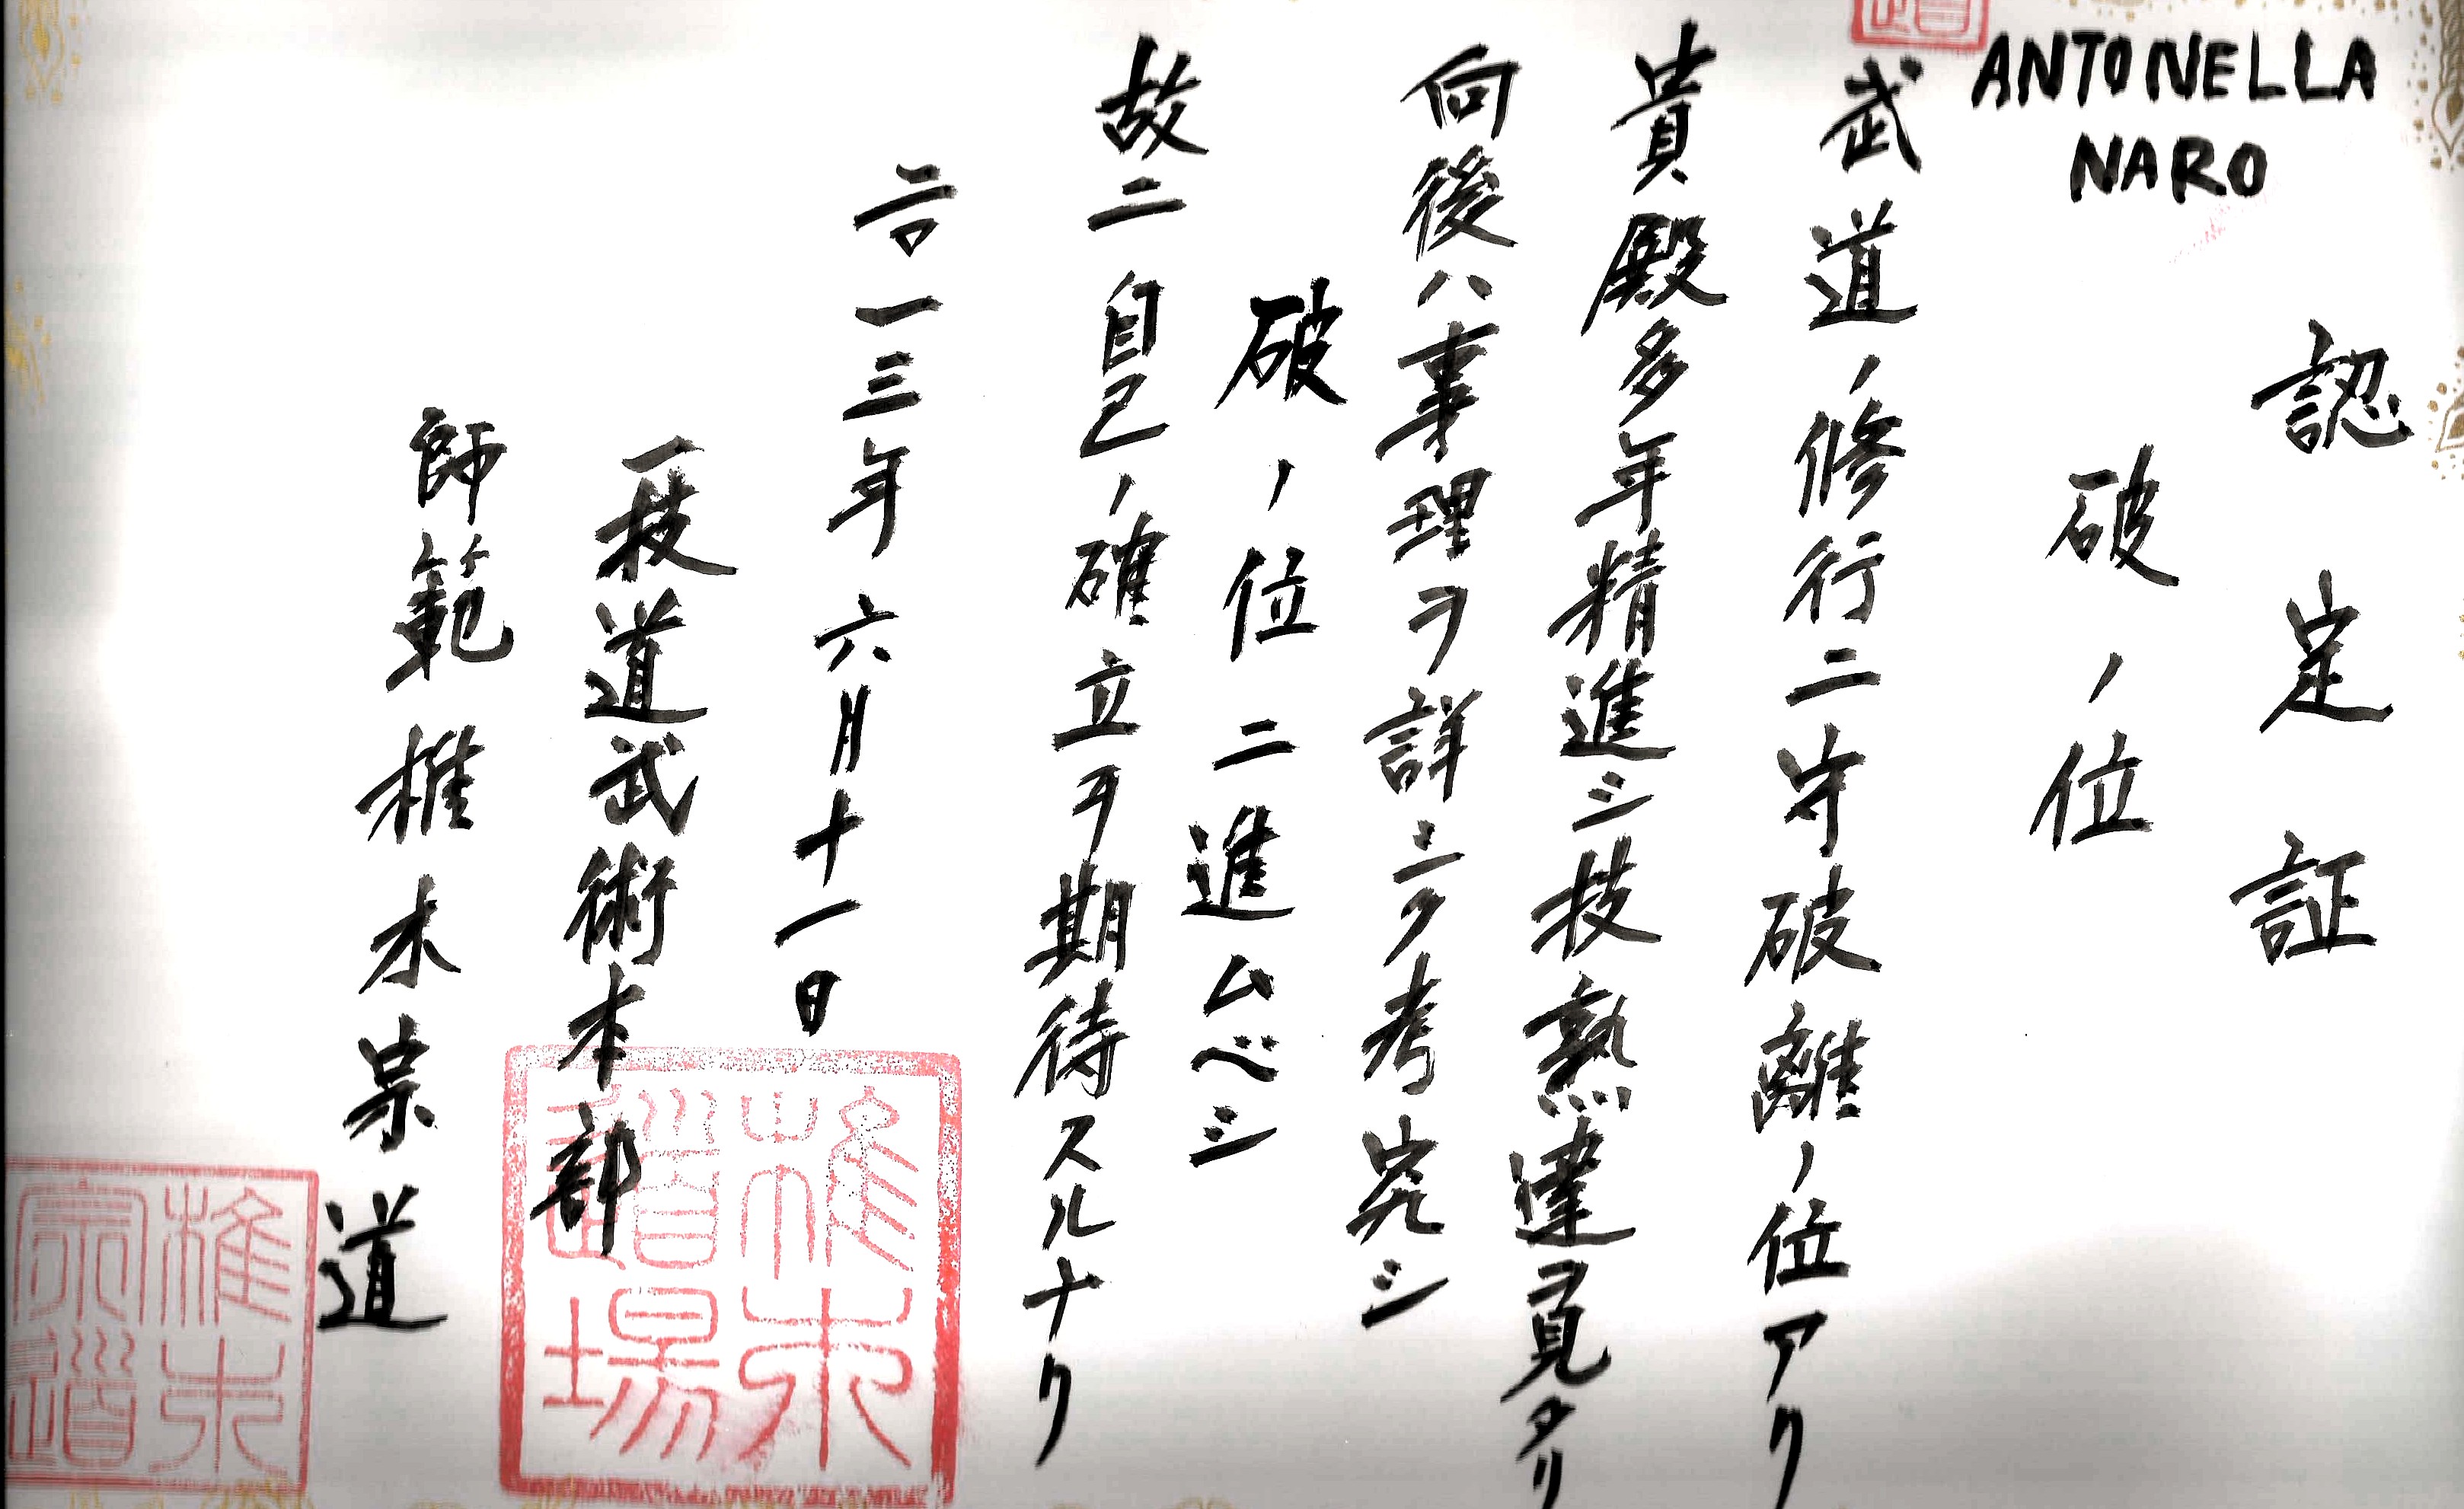 認定証
破ノ位
ANTONELLA
NARO
武道ノ修行ニ守破離ノ位アリ
貴殿多年精進シ技熟達ヲ見タリ
向後ハ事理ヲ詳シク考究シ
破ノ位ニ進ムベシ
故ニ自己ノ確立ヲ期待スルナリ
二〇一三年六月十一日
一技道武術本部
師範椎木宗道
椎木
道場
椎木
宗道